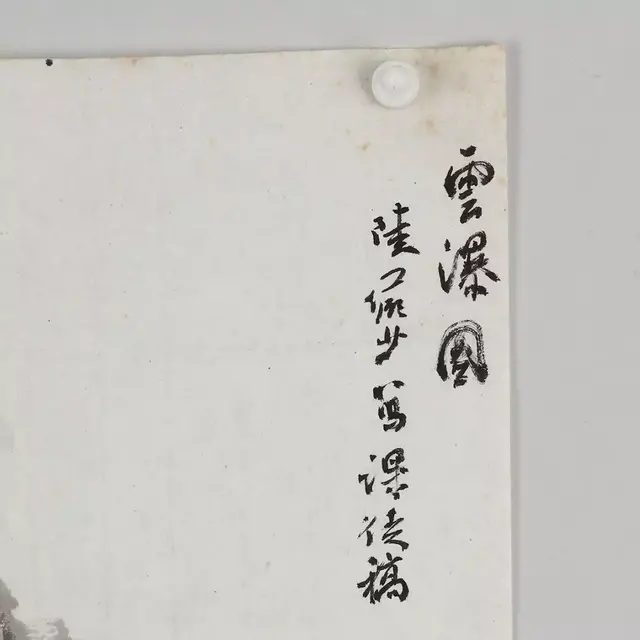 雲瀑圖
陸儼少寫課徒稿